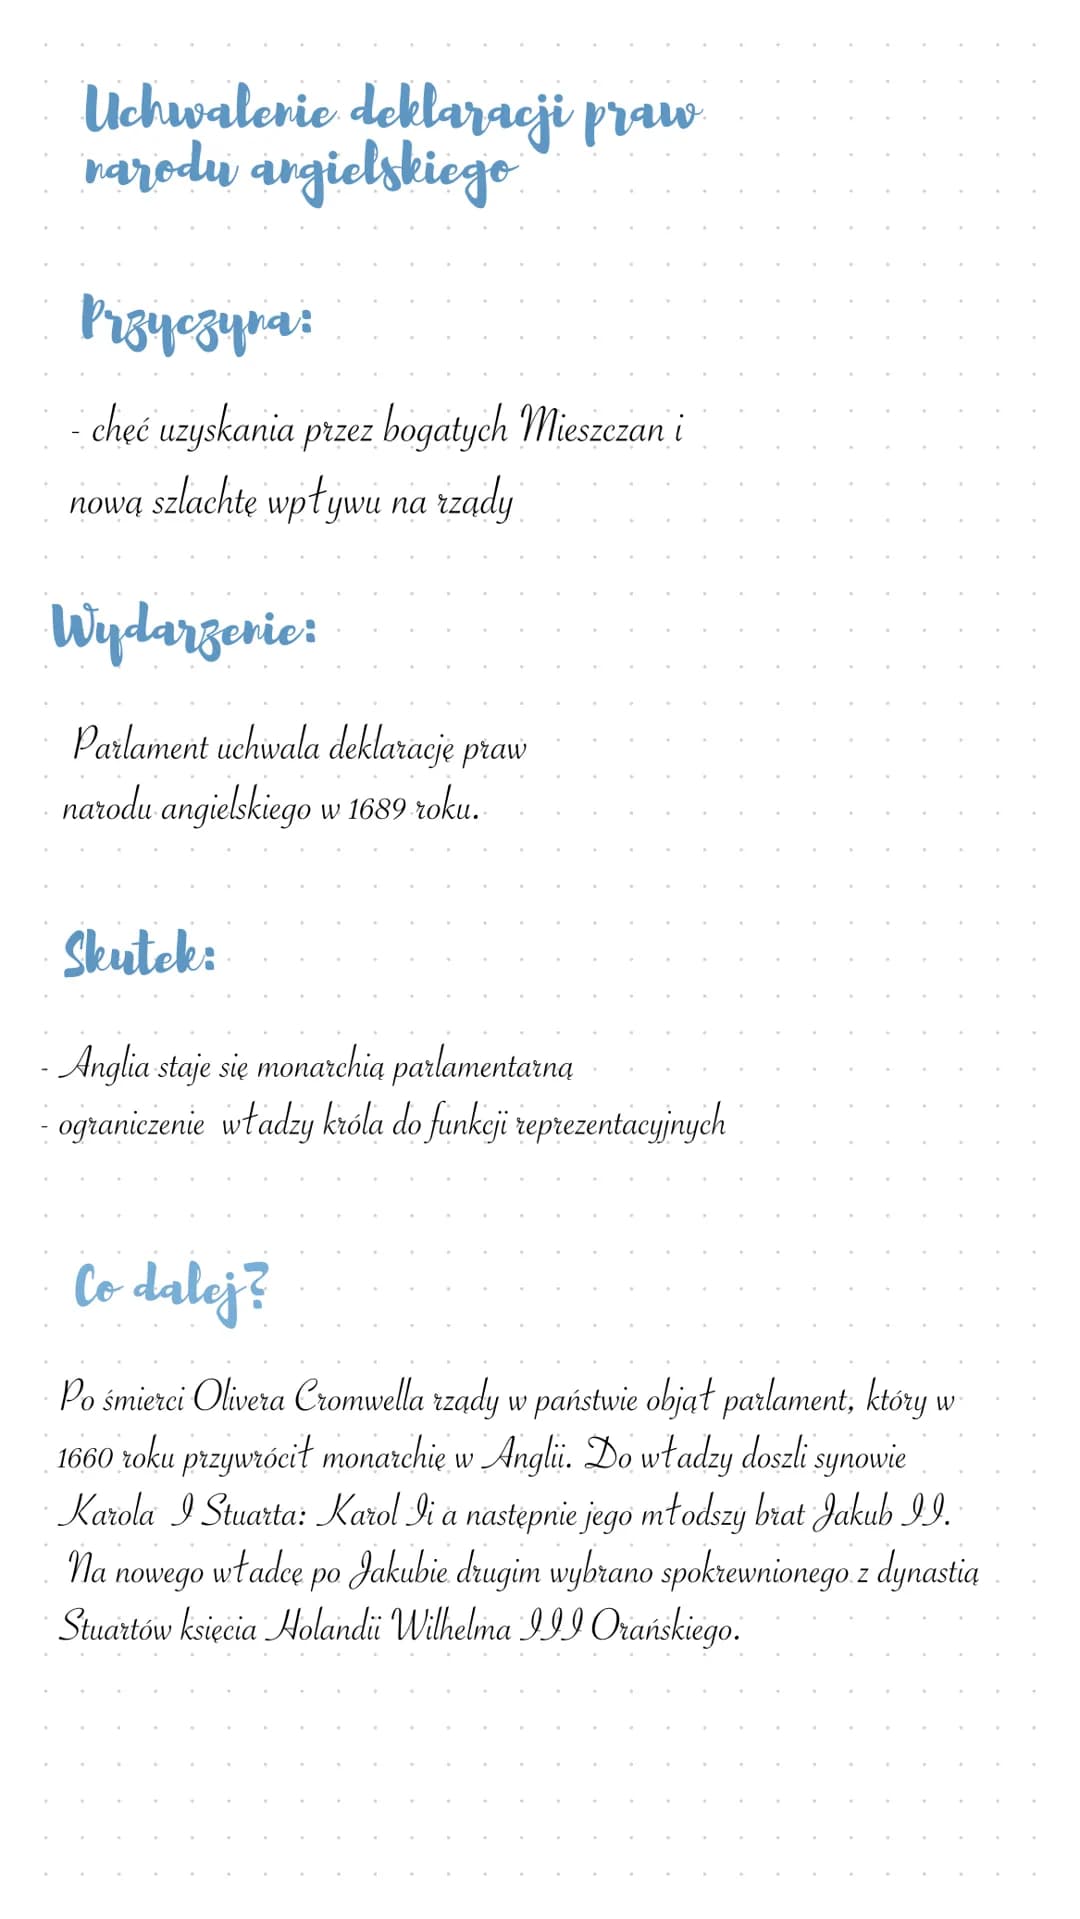 Uchwalenie deklaracji praw
narodu angielskiego
Przyczyna:
- chęć uzyskania przez bogatych Mieszczan i
nową szlachtę wpływu na rządy
Wydarzenie:
Parlament uchwala deklarację praw
narodu angielskiego w 1689 roku.
Skutek:
- Anglia staje się monarchią parlamentarną
- ograniczenie władzy króla do funkcji reprezentacyjnych
Co dalej?
Po śmierci Olivera Cromwella rządy w państwie objął parlament, który w
1660 roku przywrócił monarchię w Anglii. Do władzy doszli synowie
Karola I Stuarta: Karol Ii a następnie jego młodszy brat Jakub II.
Na nowego władcę po Jakubie drugim wybrano spokrewnionego z dynastią
Stuartów księcia Holandii Wilhelma III Orańskiego.